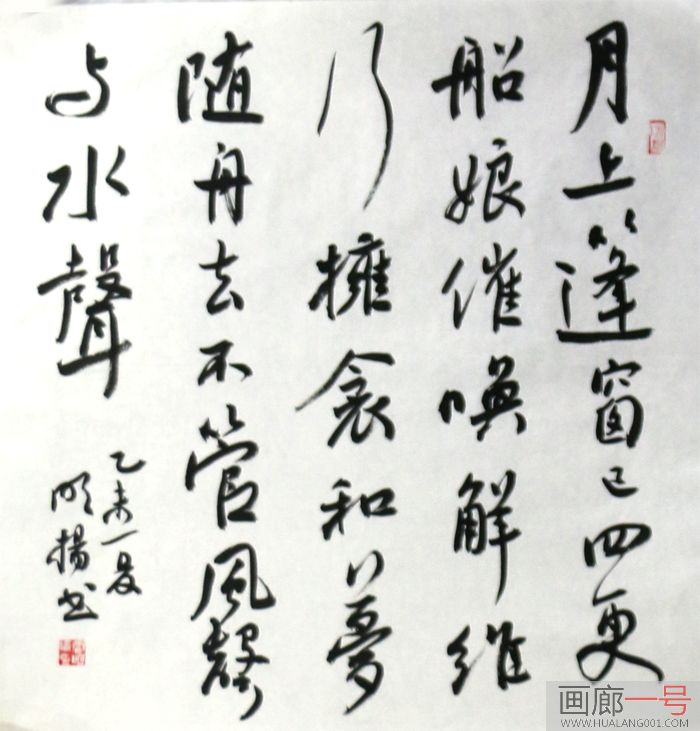 月上篷窗已四更
船娘催唤解维
行擁衾和夢
随舟去不管風聲
与水聲
乙未夏
明揚书
画廊一号
WWW.HUALANG001.COM